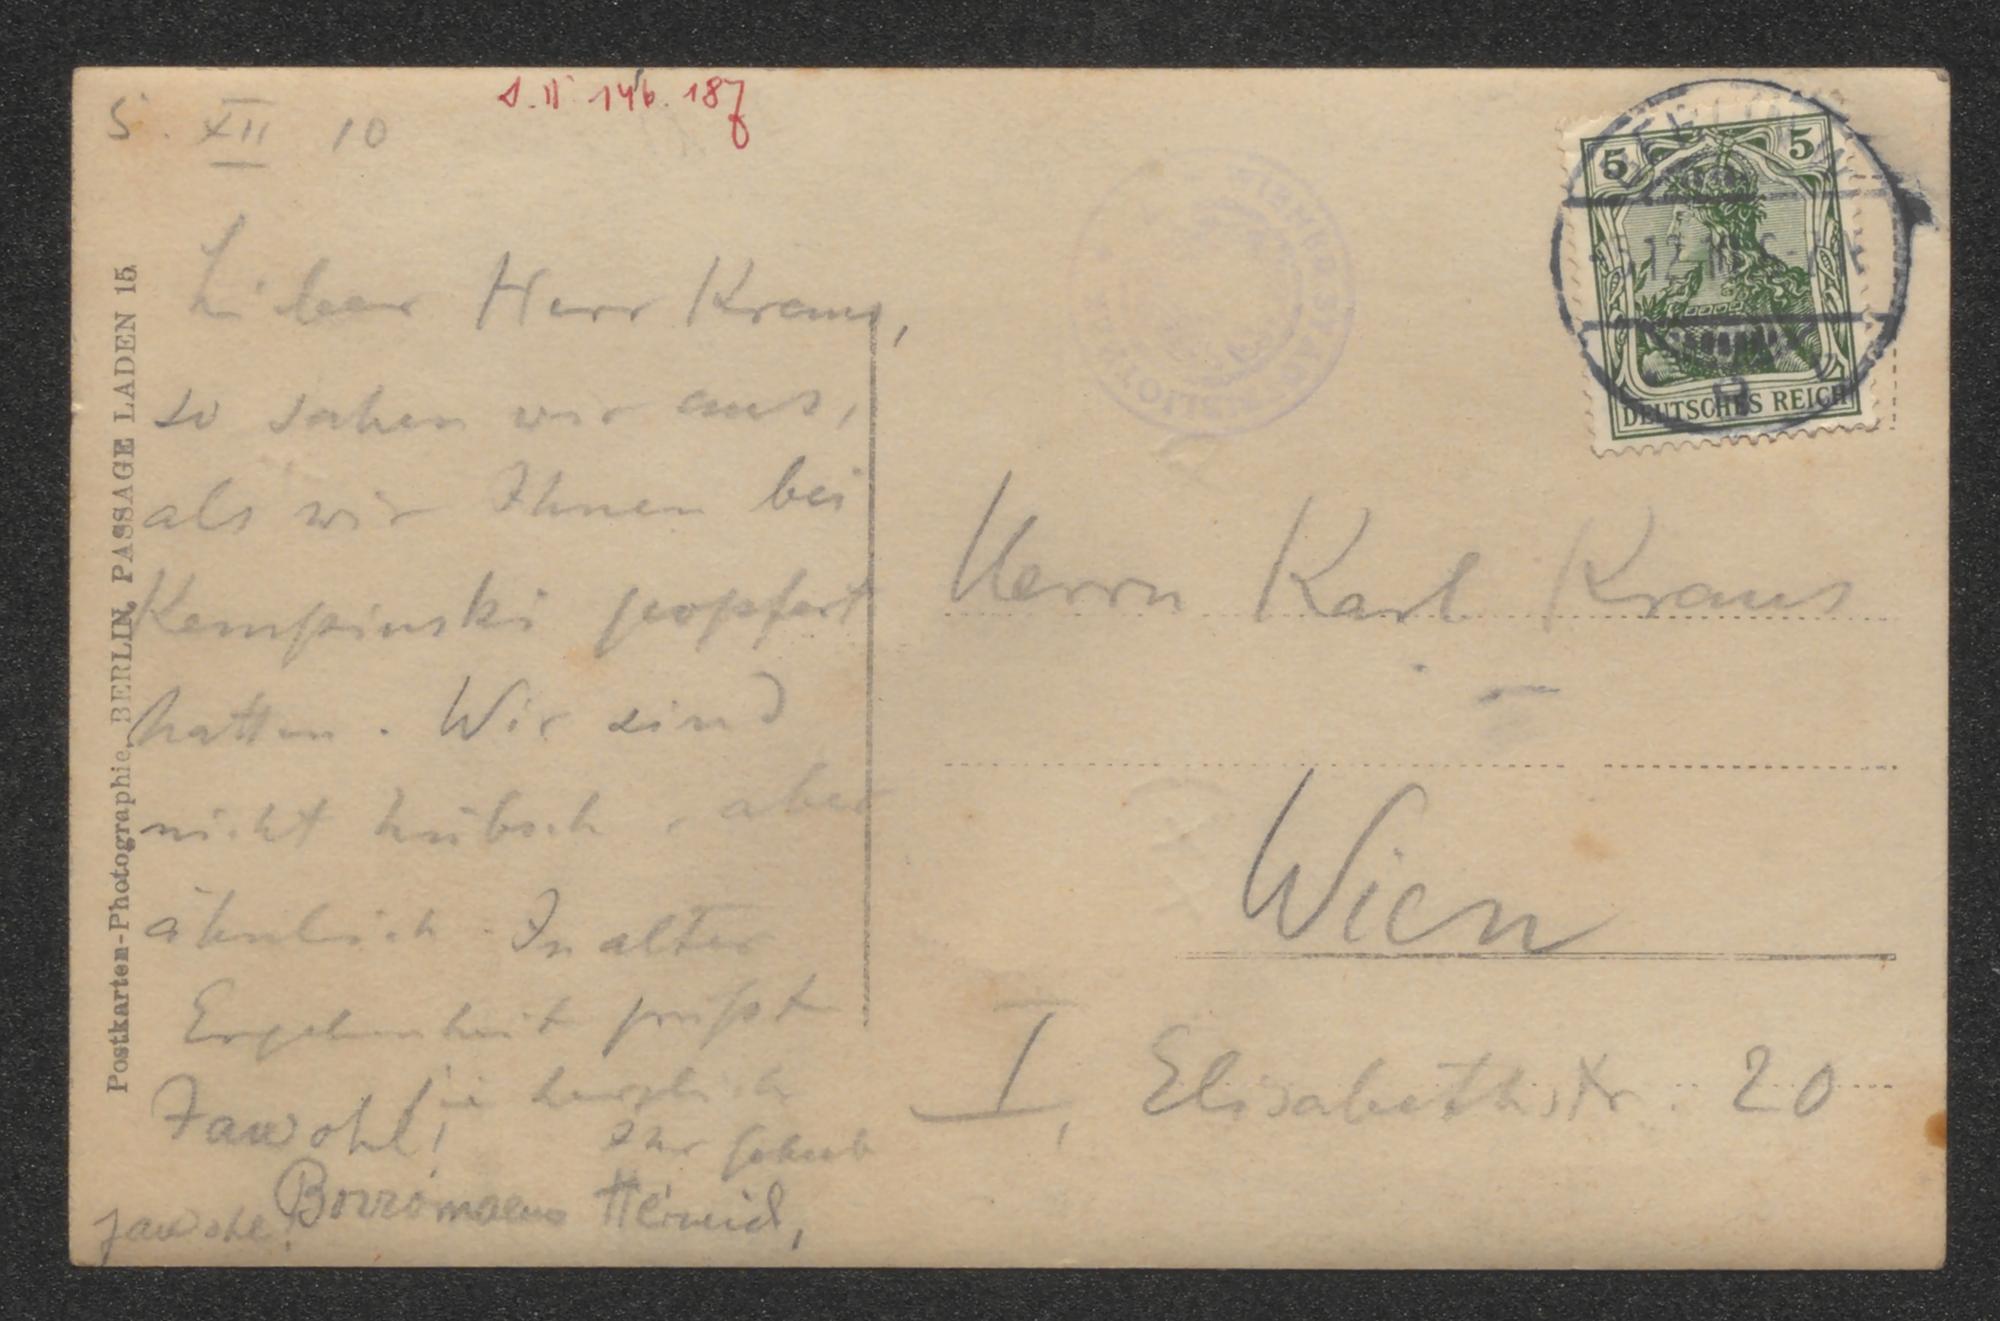 5. XII 10
Lieber Herr Kraus,
so sahen wir aus,
als wir Ihnen bei
Kempinski geopfert
hatten. Wir sind
nicht hübsch, aber
ähnlich. In alter
Ergebenheit grüsst
Sie herzlich
Ihr
Jawohl!
Borromaeus
Jawohl!
Postkarten-Photographie, BERLIN, PASSAGE LADEN 15
5 5
DEUTSCHES REICH
Herrn Karl Kraus
Wien
I, Elisabethstr. 20